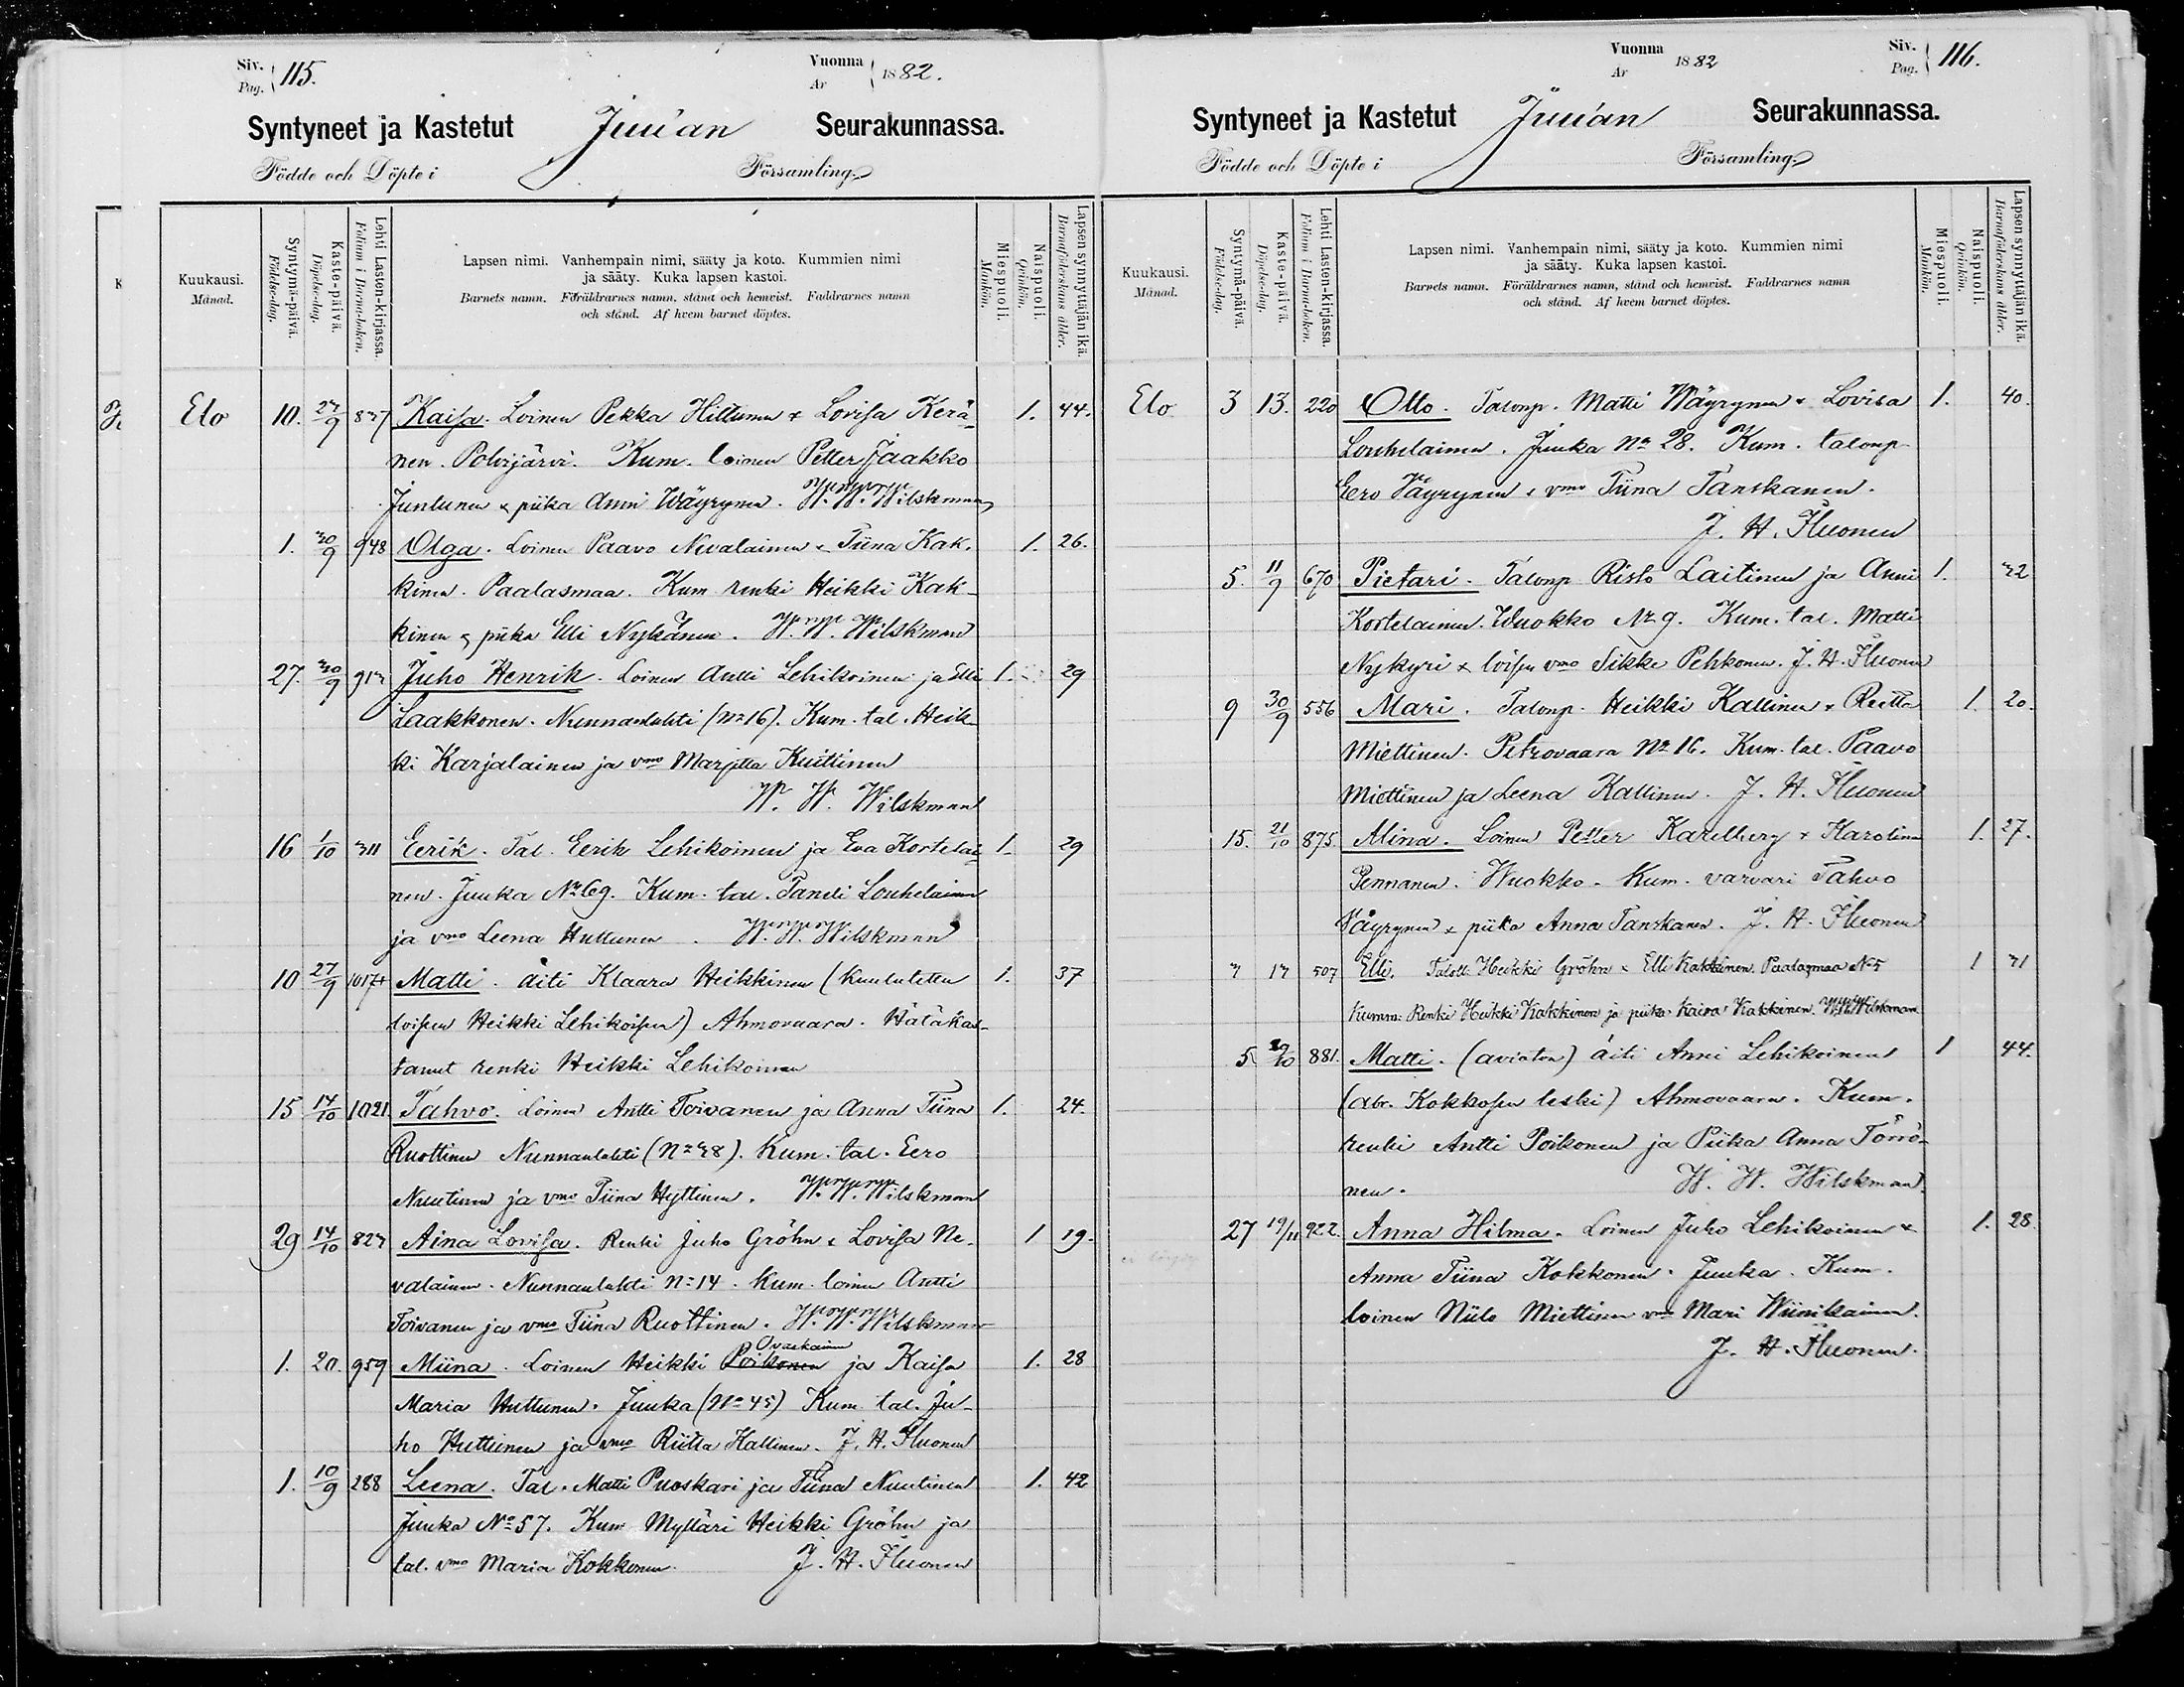 Siv. Pag. 115.
Vuonna År 1882.
Syntyneet ja Kastetut Juuan Seurakunnassa.
Födde och Döpte i Församling.
Kuukausi. Månad.
Syntymä-päivä. Födelse-dag.
Kaste-päivä. Döpelse-dag.
Lehti Lasten-kirjassa. Folium i Barna-boken.
Lapsen nimi. Vanhempain nimi, sääty ja koto. Kummien nimi
ja sääty. Kuka lapsen kastoi.
Barnets namn. Föräldrarnes namn, stånd och hemvist. Faddrarnes namn
och stånd. Af hvem barnet döptes.
Miespuoli. Mankön.
Naispuoli. Qvinkön.
Lapsen synnyttäjän ikä. Barnaföderskans ålder.
Elo 10. 27/9 837 Kaisa. Loinen Pekka Hiltunen & Lovisa Kerä- 1. 44.
nen. Polvijärvi. Kum. loinen Petter Jaakko
Juntunen & piika Anni Wäyrynen. W. W. Wilskman
1. 30/9 948 Olga. Loinen Paavo Nevalainen & Tiina Kak- 1. 26.
kinen. Paalasmaa. Kum. renki Heikki Kak-
kinen & piika Elli Nykänen. W. W. Wilskman
27. 30/9 913 Juho Henrik. Loinen Antti Lehikoinen ja Elli 1. 29
Laakkonen. Nunnanlahti (No 16). Kum. tal. Heik-
ki Karjalainen ja vmo Marjatta Kuittinen
W. W. Wilskman
16 1/10 311 Eerik. Tal. Eerik Lehikoinen ja Eva Kortelai- 1. 29
nen. Juuka No 69. Kum. tal. Taneli Louhelainen
ja vmo Leena Huttunen. W. W. Wilskman
10 27/9 1017 Matti. äiti Klaara Heikkinen (kuulutettu 1. 37
loisen Heikki Lehikoisen) Ahmovaara. Hätäkas-
tanut renki Heikki Lehikoinen
15 14/10 1021. Tahvo. Loinen Antti Toivanen ja Anna Tiina 1. 24.
Ruottinen Nunnanlahti (No 38). Kum. tal. Eero
Nuutinen ja vmo Tiina Hyttinen. W. W. Wilskman
29 14/10 823 Aina Lovisa. Renki Juho Gröhn & Lovisa Ne- 1 19.
valainen. Nunnanlahti No 14. Kum. loinen Antti
Toivanen ja vmo Tiina Ruottinen. W. W. Wilskman
Ovaskainen
1. 20. 959 Miina. Loinen Heikki Poikonen ja Kaisa 1. 28
Maria Huttunen. Juuka (No 45) Kum. tal. Ju-
ho Huttunen ja vmo Riitta Kallinen. J. H. Fluonen
1. 10/9 288 Leena. Tal. Matti Puoskari ja Tiina Nuutinen 1. 42
Juuka No 57. Kum. Mylläri Heikki Gröhn ja
tal. vmo Maria Kokkonen. J. H. Fluonen
Vuonna År 1882
Siv. Pag. 116.
Syntyneet ja Kastetut Juuan Seurakunnassa.
Födde och Döpte i Församling.
Kuukausi. Månad.
Syntymä-päivä. Födelse-dag.
Kaste-päivä. Döpelse-dag.
Lehti Lasten-kirjassa. Folium i Barna-boken.
Lapsen nimi. Vanhempain nimi, sääty ja koto. Kummien nimi
ja sääty. Kuka lapsen kastoi.
Barnets namn. Föräldrarnes namn, stånd och hemvist. Faddrarnes namn
och stånd. Af hvem barnet döptes.
Miespuoli. Mankön.
Naispuoli. Qvinkön.
Lapsen synnyttäjän ikä. Barnaföderskans ålder.
Elo 3 13. 220 Otto. Talonp. Matti Wäyrynen & Lovisa 1. 40.
Louhelainen. Juuka No 28. Kum. talonp.
Eero Väyrynen & vmo Tiina Tanskanen.
J. H. Fluonen
5. 11/9 670 Pietari. Talonp Risto Laitinen ja Anni 1. 32
Kortelainen. Wuokko No 9. Kum. tal. Matti
Nykyri & loisen vmo Sikke Pehkonen. J. H. Fluonen
9 30/9 556 Mari. Talonp. Heikki Kallinen & Reetta 1. 20.
Miettinen. Petrovaara No 16. Kum. tal. Paavo
Miettinen ja Leena Kallinen. J. H. Fluonen
15. 21/10 875. Alina. Loinen Petter Karelberg & Karolina 1. 27.
Pennanen. Wuokko. Kum. varvari Tahvo
Väyrynen & piika Anna Tanskanen. J. H. Fluonen
3 13 507 Elli. Taloll. Heikki Gröhn & Elli Kakkinen. Paalasmaa No 5 1 31
Kumm. Renki Heikki Kakkinen ja piika Kaisa Kakkinen. W. W. Wilskman
5 29/10 881. Matti. (avioton) äiti Anni Lehikoinen 1 44.
(Abr. Kokkosen leski) Ahmovaara. Kum.
renki Antti Poikonen ja Piika Anna Törrö-
nen. W. W. Wilskman.
27 19/11 922. Anna Hilma. Loinen Juho Lehikoinen & 1. 28.
Anna Tiina Kokkonen. Juuka. Kum.
loinen Niilo Miettinen vmo Mari Wiinikainen.
J. H. Fluonen.